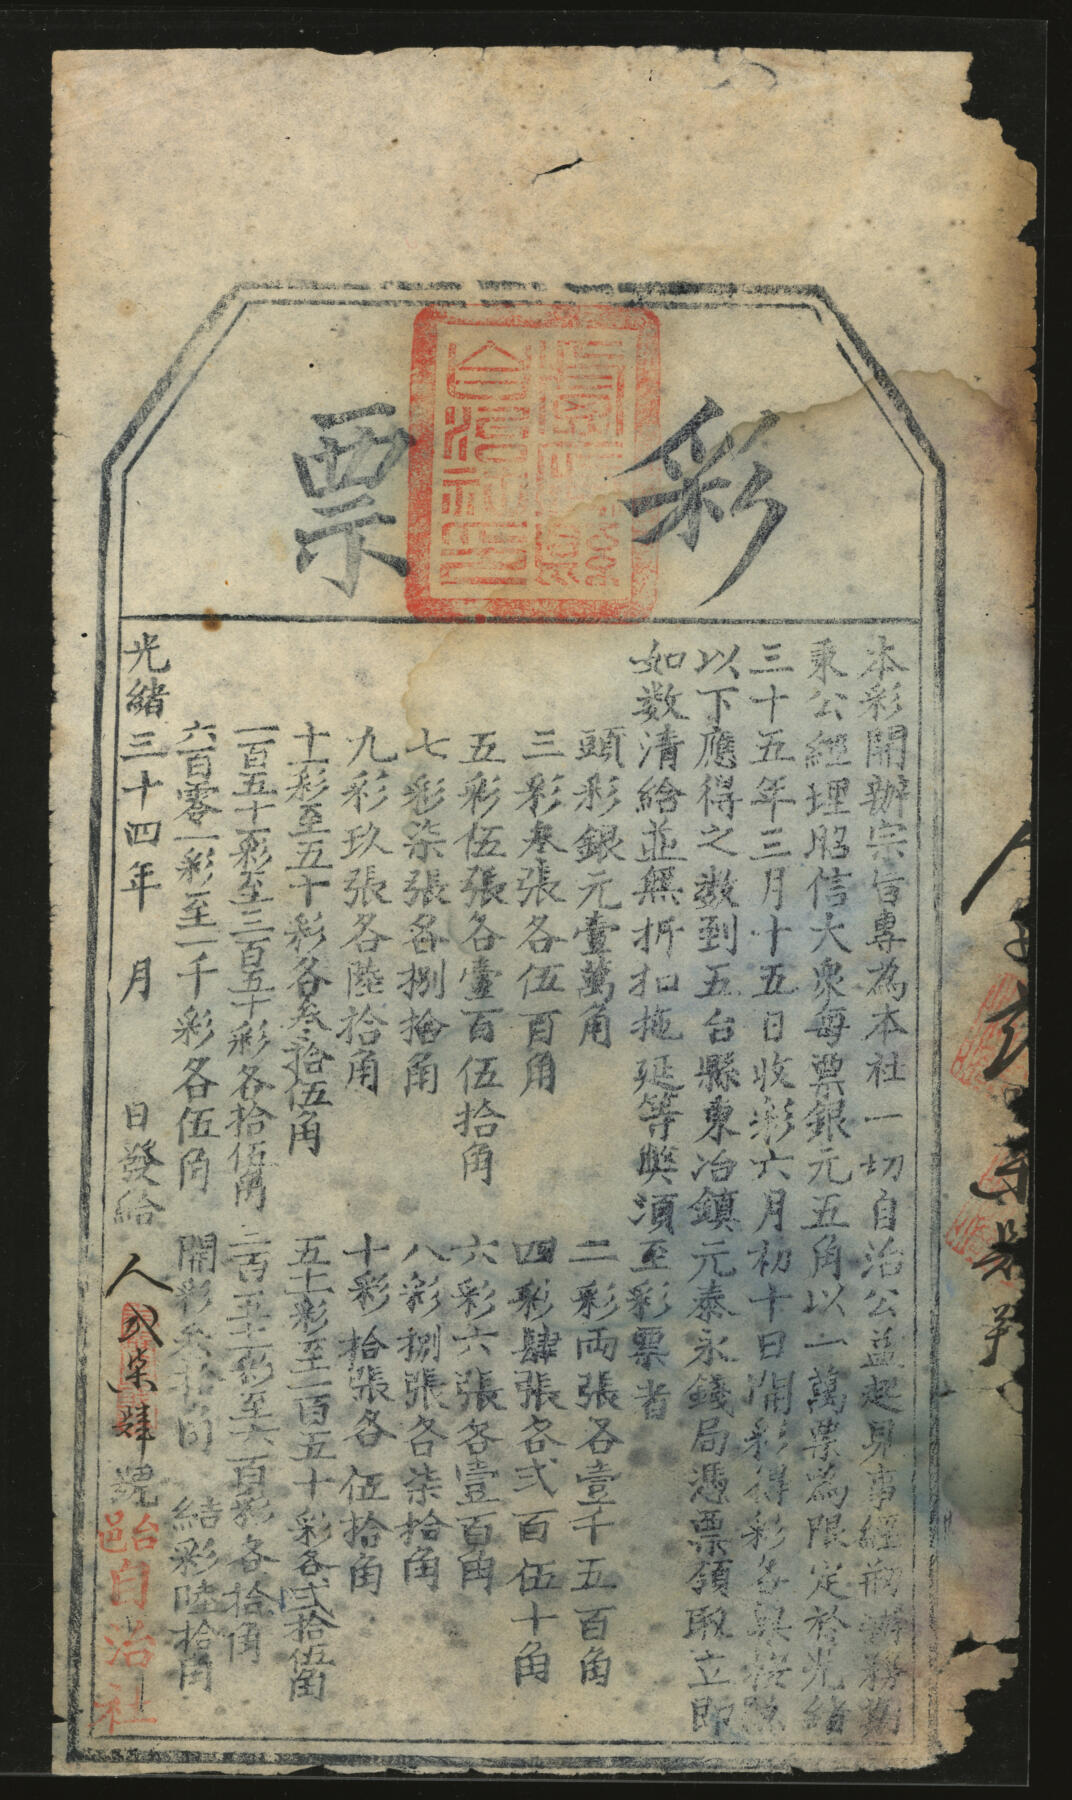 彩票
本彩開辦宗旨專為本社一切自治公益起見事經初辦務期
秉公經理昭信大衆每票銀元五角以一萬票為限定於光緒
三十五年三月十五日收彩六月初十日開彩得彩各
以下應得之數到五台縣東冶鎮元泰永錢局憑票領取立即
如数清給並無折扣拖延等獘須至彩票者
頭彩銀元壹萬角 二彩両張各壹千五百角
三彩叁張各伍百角 四彩肆張各弍百伍十角
五彩伍張各壹百伍拾角 六彩六張各壹百角
七彩柒張各捌拾角 八彩捌張各柒拾角
九彩玖張各陸拾角 十彩拾張各伍拾角
十一彩至五十彩各叁拾伍角 五十一彩至一百五十彩各弍拾伍角
一百五十一彩至三百五十彩各拾伍角 三百五十一彩至六百彩各拾角
六百零一彩至一千彩各伍角 開彩叁拾角 結彩陸拾角
光緒三十四年 月 日發給 人弍柒肆號
台邑自治社